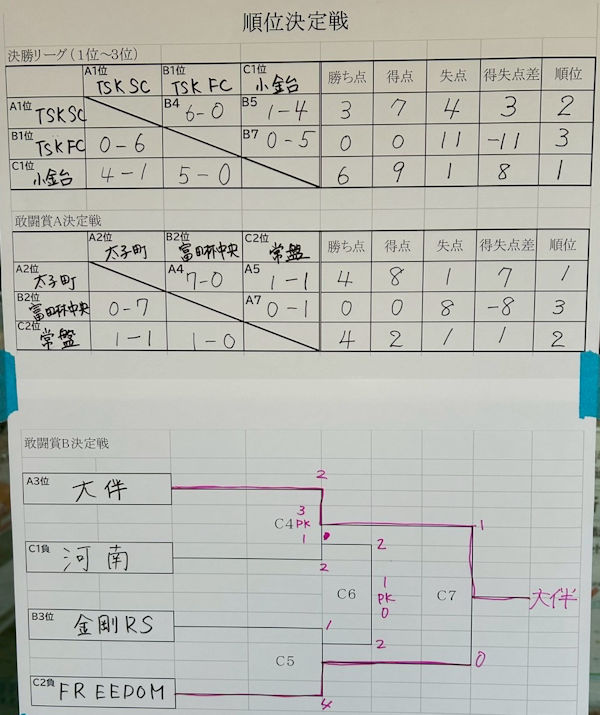 順位決定戦
決勝リーグ（1位～3位）
A1位 TSK SC B1位 TSK FC C1位 小金台 勝ち点 得点 失点 得失点差 順位
A1位 TSK SC B4 6-0 B5 1-4 3 7 4 3 2
B1位 TSK FC 0-6 B7 0-5 0 0 11 -11 3
C1位 小金台 4-1 5-0 6 9 1 8 1
敢闘賞A決定戦
A2位 太子町 B2位 富田林中央 C2位 常盤 勝ち点 得点 失点 得失点差 順位
A2位 太子町 A4 7-0 A5 1-1 4 8 1 7 1
B2位 富田林中央 0-7 A7 0-1 0 0 8 -8 3
C2位 常盤 1-1 1-0 4 2 1 1 2
敢闘賞B決定戦
A3位 大伴 2
C4 3 PK 1 1
C1負 河南 2 2
C6 1 PK 0 C7 大伴
B3位 金剛RS 1 2
C5 0
C2負 FREEDOM 4